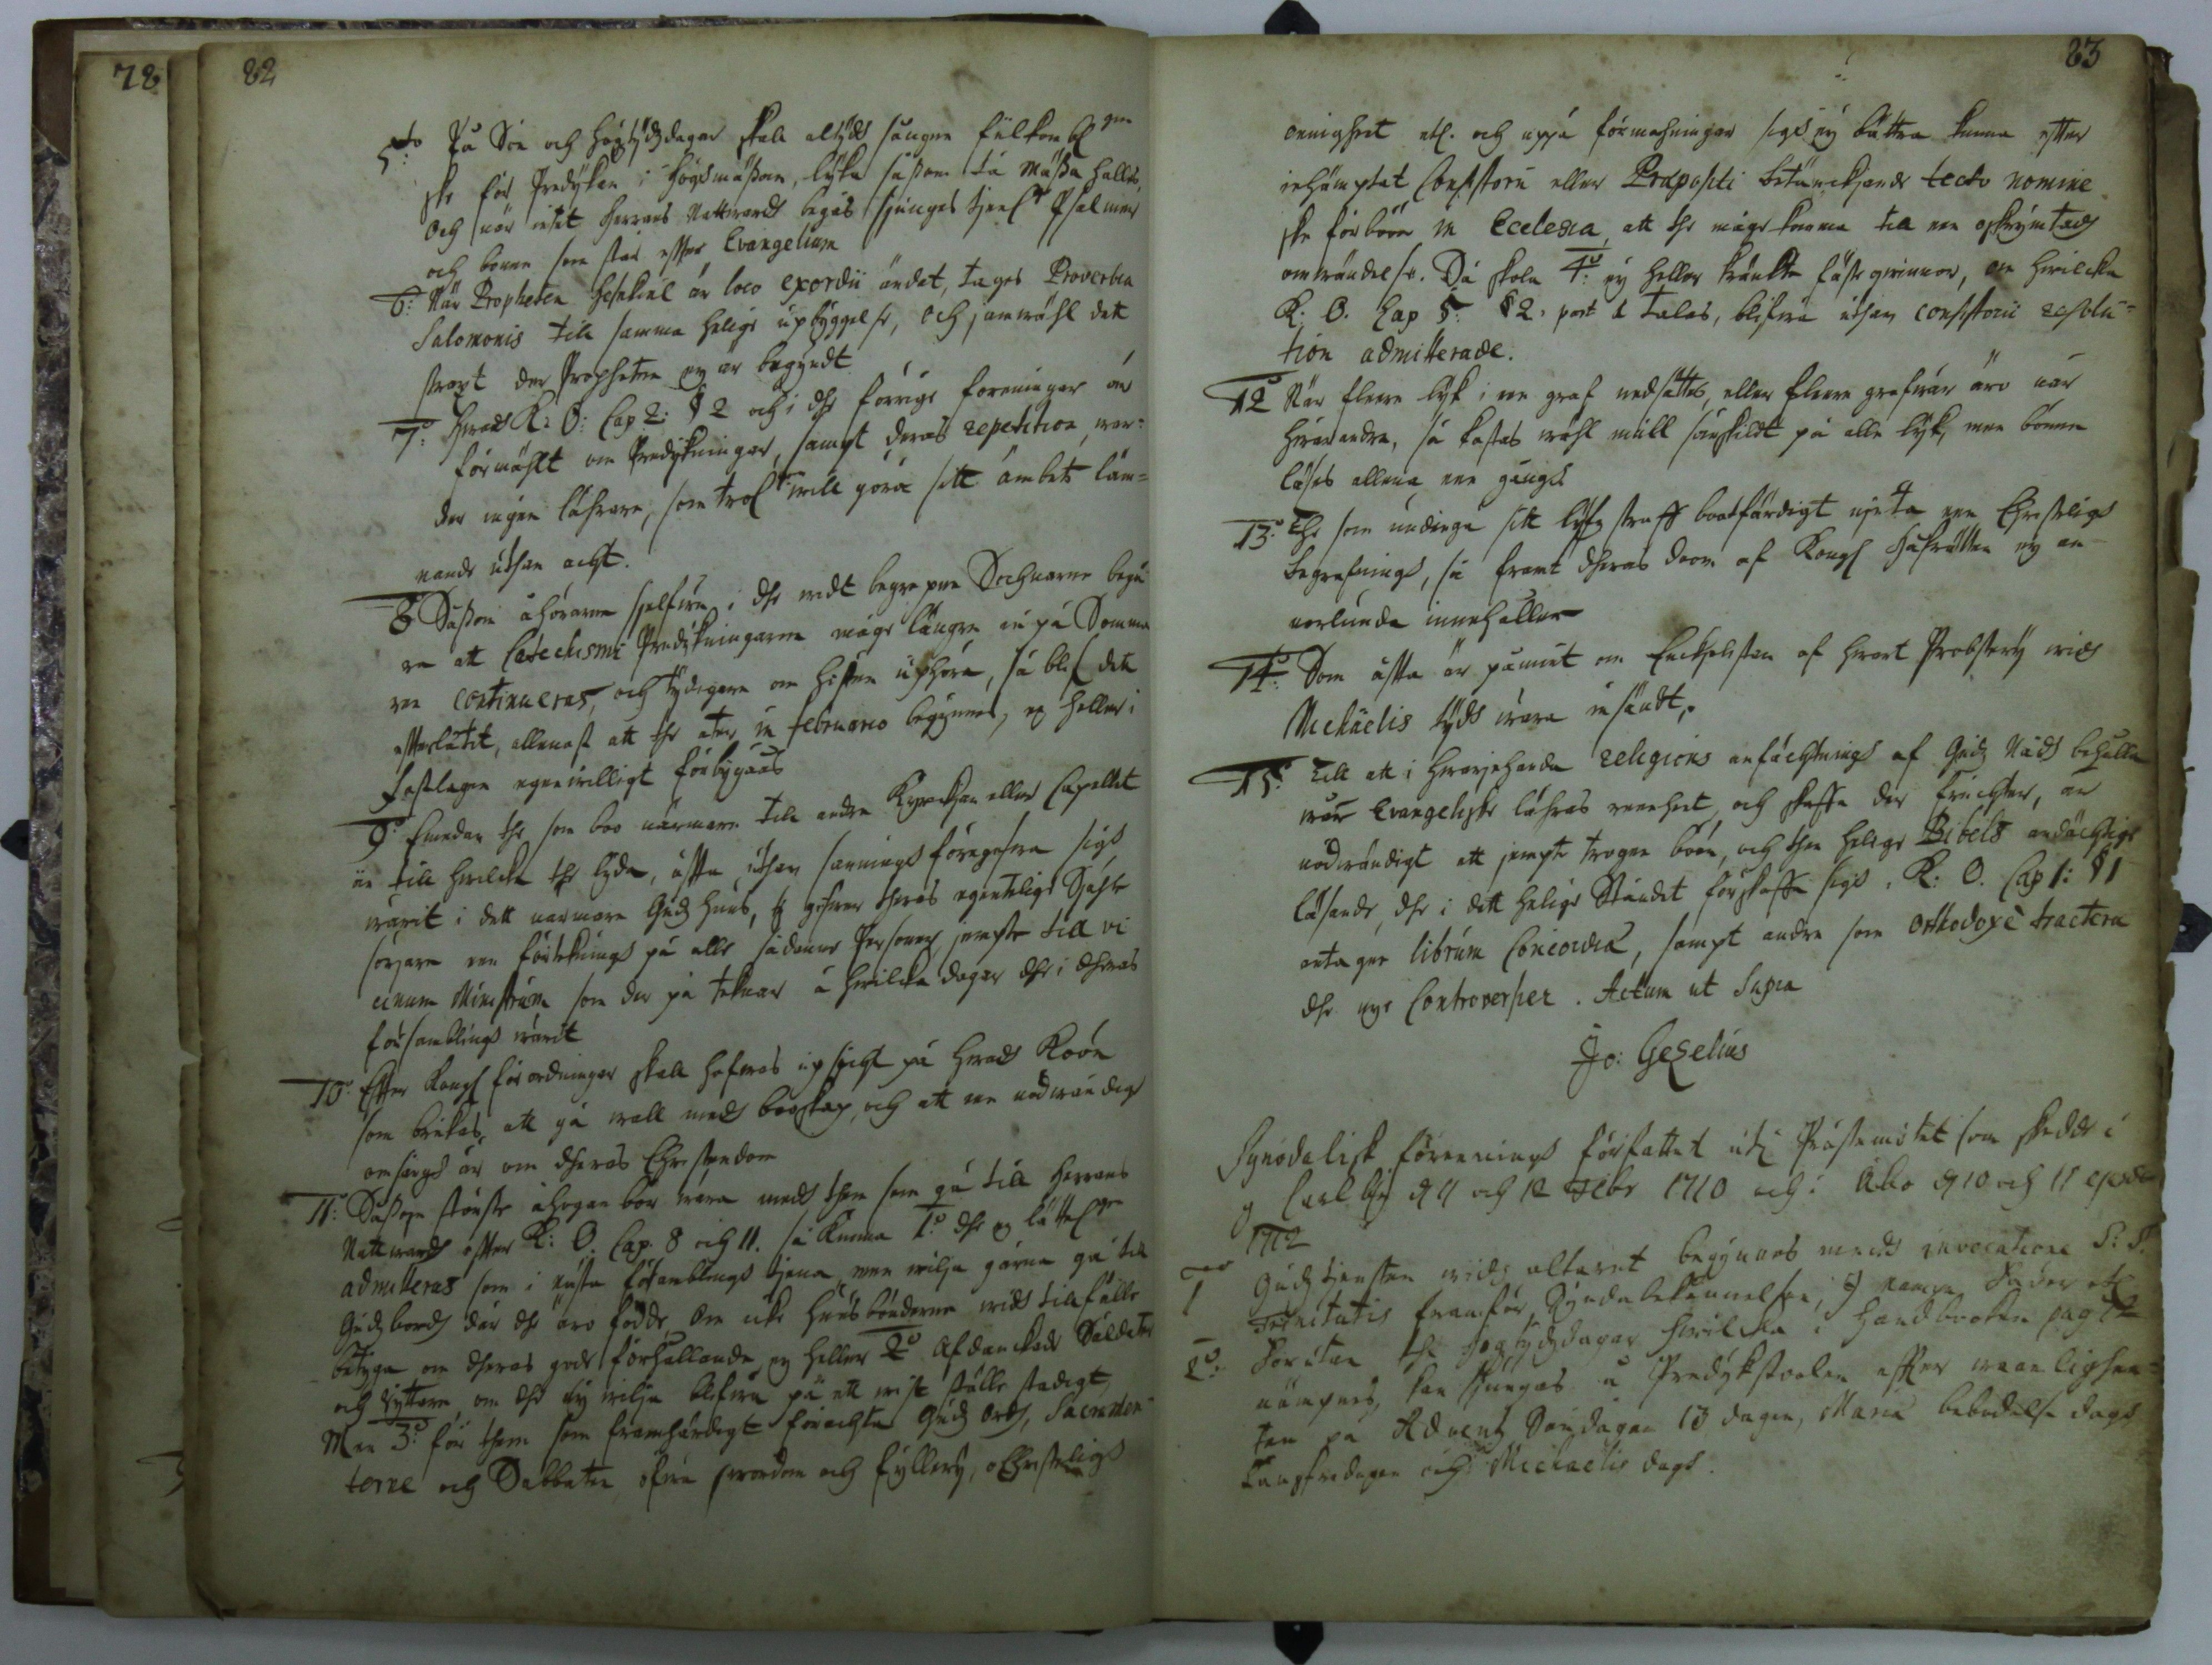 78
82
5to: På Sön och högtijdzdagar skall altijdh sången fulkoml:gen
ske för Predijkan i högmässan, lijka såsom då Mässa halles,
Och när intet Herrans Nattward begås siunges Psalmen
och bönen som står effter Evangelium
6: När Propheten Hesekiel är loco exordii ändat, tages Proverbia
Salomonis till samma helige upbyggelse, och jämwähl dett
straxt der Propheten ej är begyndt
7o: Hwad K: O: Cap 2: § 2 och i dhe förrige föreningar är
förmählt om Predijkningar, sampt deras repetition, war-
der ingen lährare, som will göra sitt ämbete läm-
nande uthan acht.
8 Såsom åhörarne sielfwe i dhe widt begrepne Sochnarne begä-
ra att Catechismi Predijkningarne måge längre in på Somma-
ren continueras, och tydigare om hösten uphöra, så blif dett
effterlåtit, allenast att the åter in Februario begynnes, ej heller i
fastlagen egenwilligt förbijgåås
9o Emedan the som boo närmare till andra Kyrckian eller Capellet
än till hwilcka the lyda, offta uthan sannings föregifwa sigh
warit i dett närmare Gudz huus, ty gifwer theras egentelige Siähle
sörjare een förtekning på alle sådanne Personer, jempte till vi
cinum Ministrum som der på teknar å hwilcka dagar dhe i dheras
församblingh warit
10o Effter Kongl förordningar skall hafwas upsicht på hwad Köön
som brukas, att gå wall medh booskap, och att een nödwändig
omsorgh är om dheras Christendom
11: Såsom största åhogan bör wara medh them som gå till Herrans
Nattward effter K: O: Cap. 8 och 11. så kunna 1o dhe ej lättel:gen
admitteras som i annsta församblingh tjena, men wilja gärna gå till
Gudz bord där dhe äro födde, Om icke huusbönderne widh tillfälle
betyga om dheras gode förhållande, ej heller 2o Afdanckade Soldater
och Ryttare om the eij wilja blifwa på ett wist ställe stadigt,
Men 3o: för them som framhärdigt förachta Gudz Ord, Sacramen-
terne och Sabbaten, öfwa swordom och fyllerij, oChristeligh
83
oenighet etc. och uppå förmahningar sigh ej bättra kunna effter
inhämptat Consistorii eller Præpositi betänckiande tecto nomine
ske förböön in Ecclesia, att the måge komma till een oskrymtad
omwändelse. Då skola 4o: ej heller kränkte fästeqwinnor, om hwilcka
K: O. Cap 5: § 2. talas, blifwa uthan consistorii resolu-
tion admitterade.
12o När fleere lijk i een graf nedsättes, eller fleere grafwar äro när
hwarandra, så kastas wähl mull särskildt på alle lijk, men bönen
läses allena een gångh
13o: The som undergå sitt lijfz straff bootfärdigt niuta een Christeligh
begrafningh, så framt dheras doom af Kongl Håfrätten ej an-
norlunda innehåller
14o: Som offta är påmint om Enckelisten af hwart Probsterij widh
Michäelis tijdh wara insändt,
15o: Till att i hwarjehanda religions anfächtningh af Gudz Nådh behålla
wår Evangeliske lähras reenheet, och skaffa der fruchter, är
nödwändigt att jempte trogen böön, och then helige Bibels andächtige
läsande, dhe i dett helige Ståndet förskaffe sigh, K: O. Cap 1: § 1
antagne librum Concordiæ, sampt andra som orthodoxe tractera
dhe nye Controversier. Actum ut Supra
Jo: Gezelius
Synodalisk föreningh författet uthi Prästemötet som skedde i
Carlby d 11 och 12 Febr 1710 och i Åbo d 10 och 11
1712
1mo Gudztjensten widh altaret begynnes medh invocatione S: S:
Trinitatis framför Syndabekännelsen, I namn Fader etc
2o: Förutan the högtijdzdagar hwilcka i Handboken pag 72
nämpnes, kan siungas å Predijkstoolen effter wanligheen-
ten på Advents Söndagen 13 dagen, Mariæ bebodelse dagh
Långfredagen och Michaelis dagh.